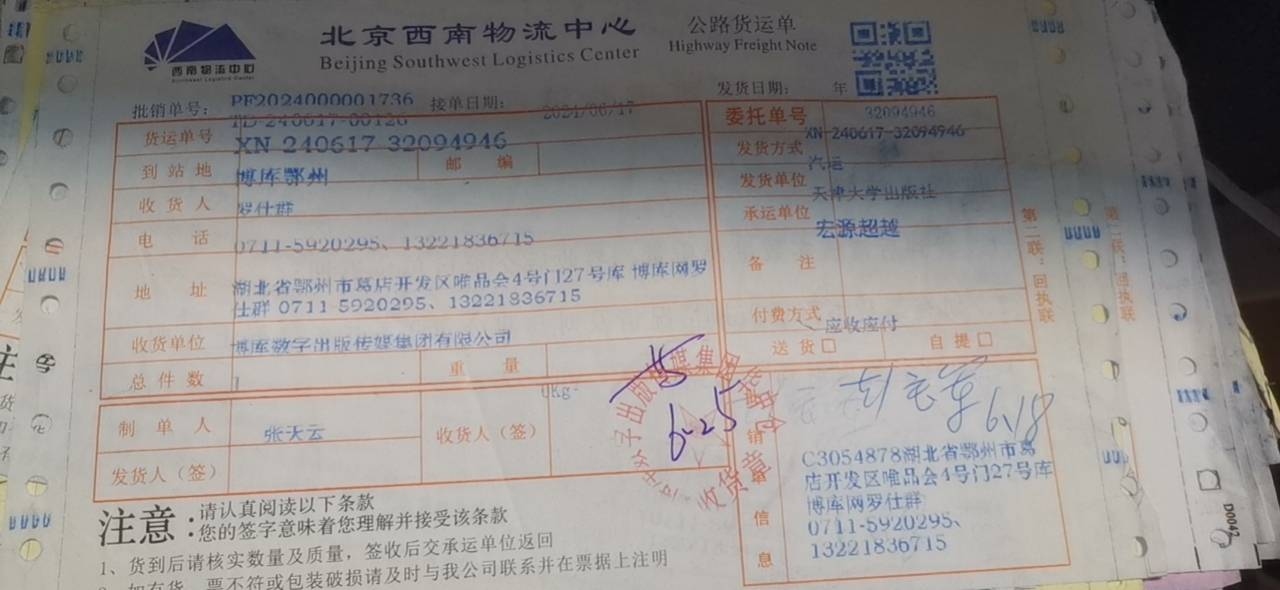 西南物流中心
Southwest Logistics Center
北京西南物流中心
Beijing Southwest Logistics Center
公路货运单
Highway Freight Note
批销单号： PF2024000001736 接单日期： 2024/06/17
发货日期： 年
TD-240617-00126
货运单号 XN-240617-32094946
到站地 博库鄂州 邮编
收货人 罗仕群
电话 0711-5920295、13221836715
地址 湖北省鄂州市葛店开发区唯品会4号门27号库 博库网罗
仕群 0711-5920295、13221836715
收货单位 博库数字出版传媒集团有限公司
总件数 1 重量 0Kg-
委托单号 32094946
XN-240617-32094946
发货方式 汽运
发货单位 天津大学出版社
承运单位 宏源超越
备注
付费方式 应收应付
送货 自提
制单人 张天云 收货人（签）
发货人（签）
6-25
收货章
6.18
信息
C3054878湖北省鄂州市葛
店开发区唯品会4号门27号库
博库网罗仕群
0711-5920295、
13221836715
第二联：回执联
第二联：回执联
D0042
注意：
请认真阅读以下条款
您的签字意味着您理解并接受该条款
1、货到后请核实数量及质量，签收后交承运单位返回
票不符或包装破损请及时与我公司联系并在票据上注明